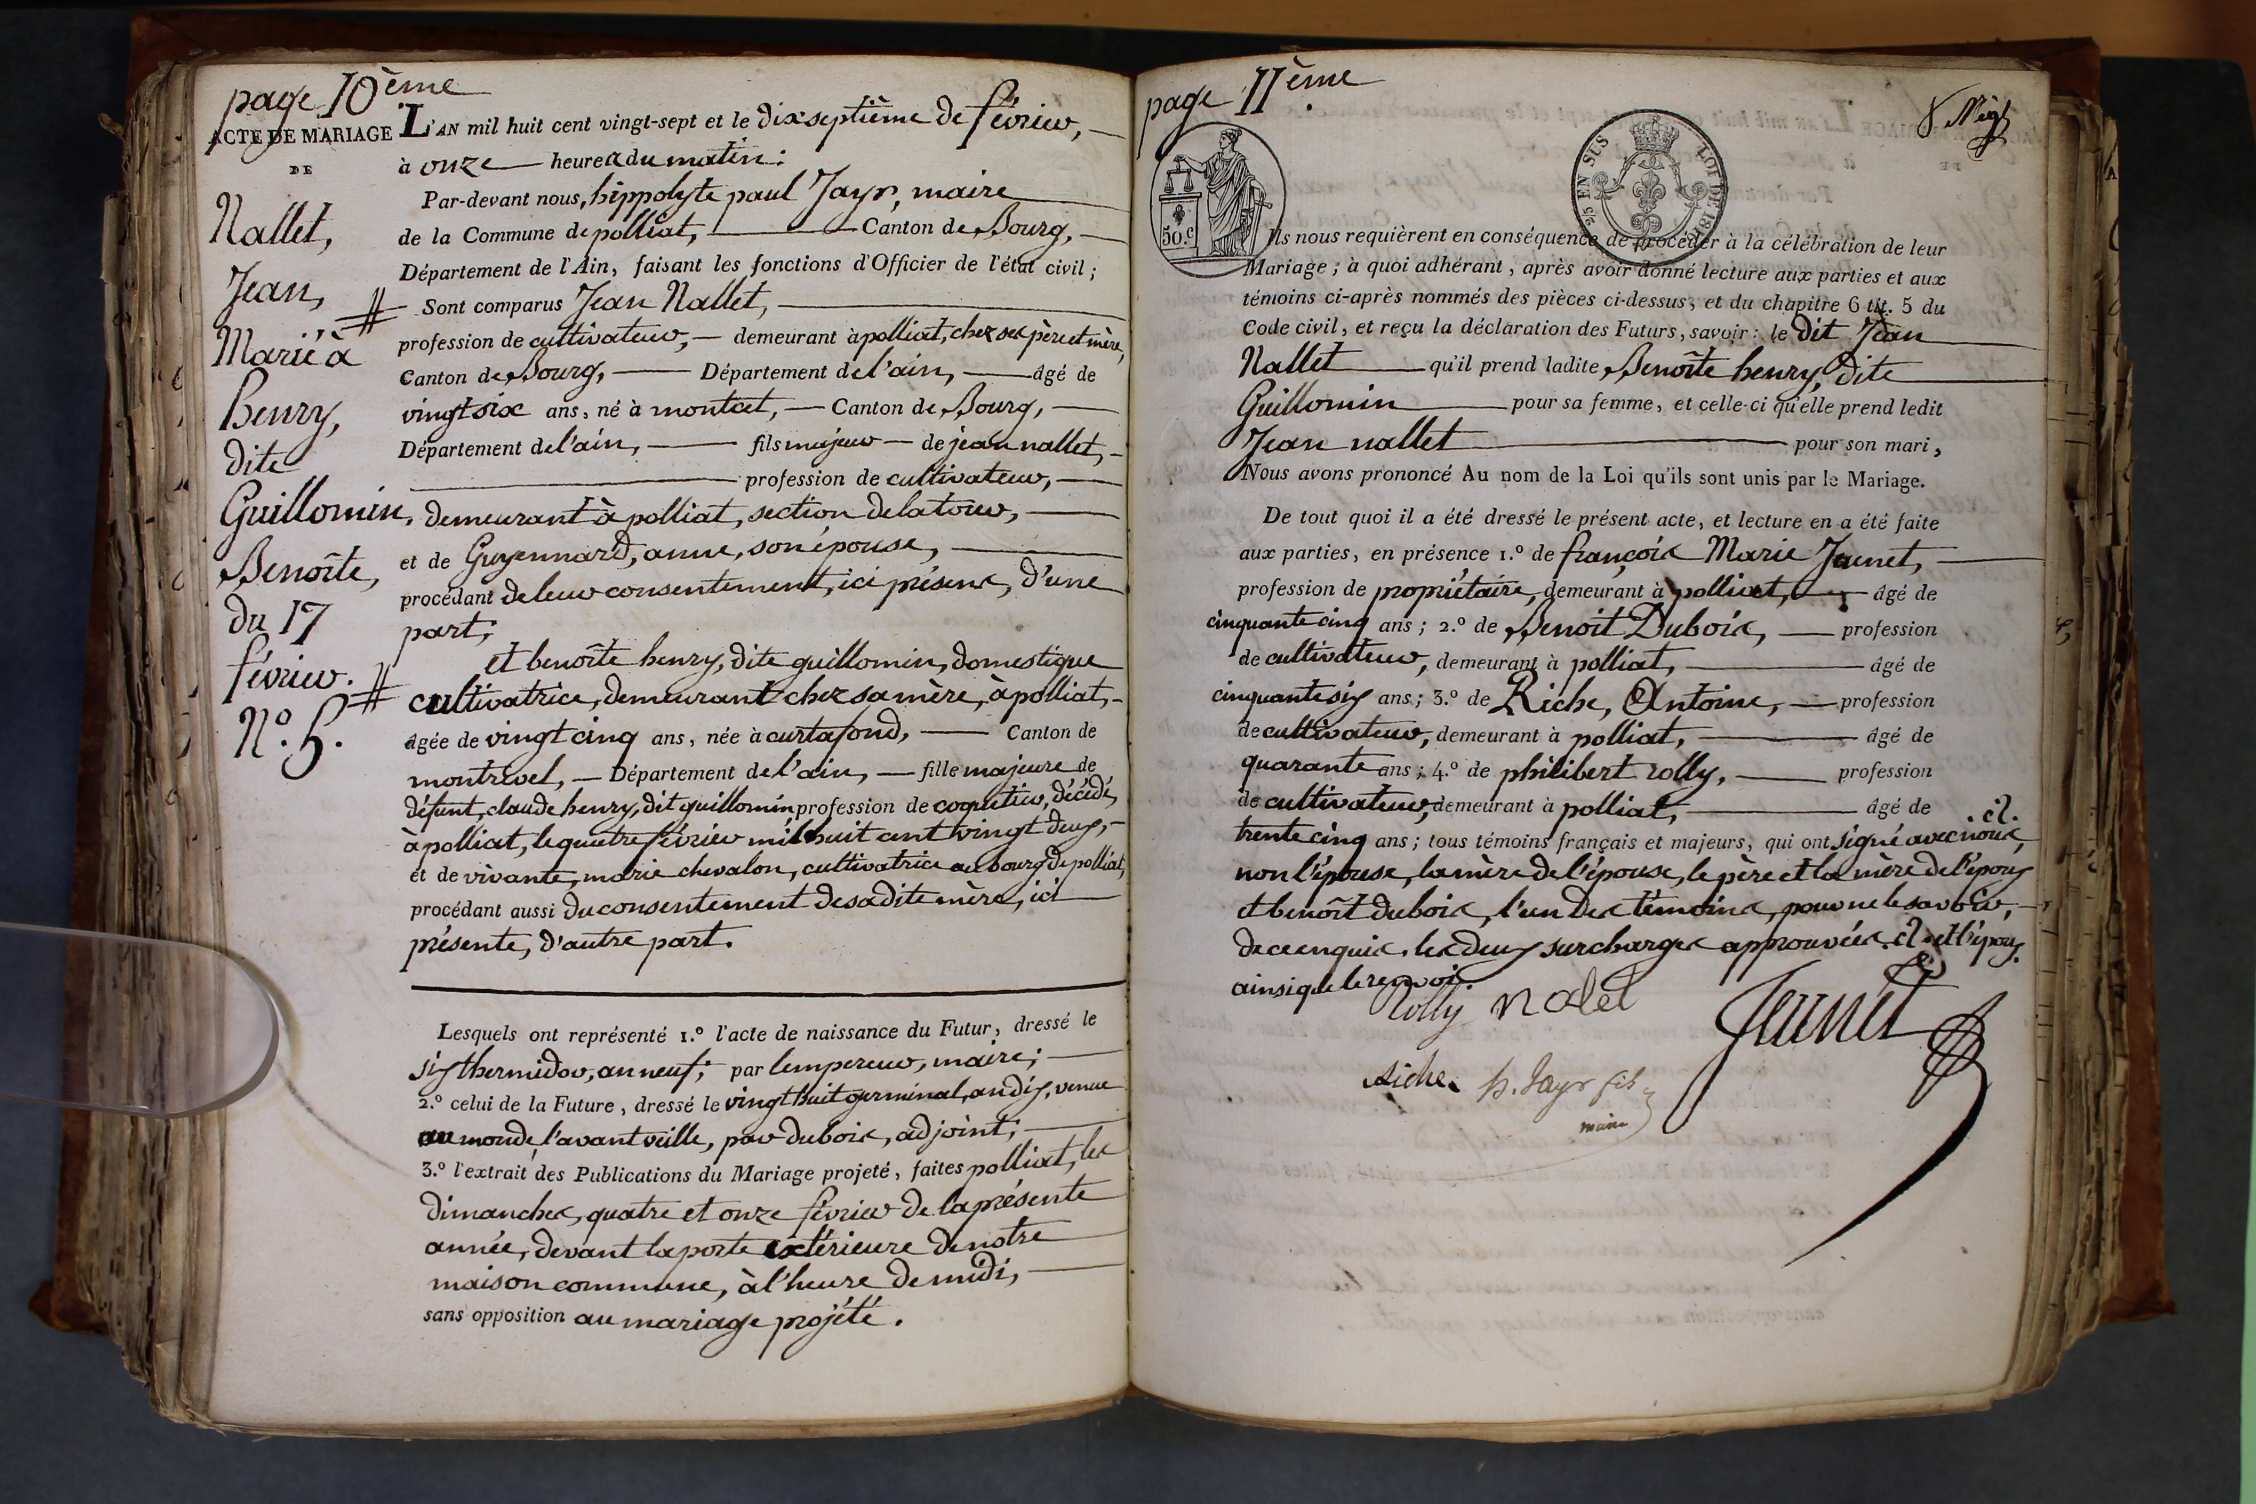 page 10ème
ACTE DE MARIAGE
DE
Nallet,
Jean,
Marié à
henry,
dite
Guillomin,
Benoîte,
du 17
février.
N.º 5.
L'AN mil huit cent vingt-sept et le dixseptième de février,
à onze heures du matin:
Par-devant nous, hippolyte paul Jayr, maire
de la Commune de polliat, Canton de Bourg,
Département de l'Ain, faisant les fonctions d'Officier de l'état civil;
Sont comparus Jean Nallet,
profession de cultivateur, demeurant à polliat, chez ses père et mère,
Canton de Bourg, Département de l'ain, âgé de
vingt six ans, né à montcet, Canton de Bourg,
Département de l'ain, fils majeur de jean nallet,
profession de cultivateur,
demeurant à polliat, section de la tour,
et de Guyennard, anne, son épouse,
procédant de leur consentement, ici présens, d'une
part;
et benoîte henry, dite guillomin, domestique
cultivatrice, demeurant chez sa mère, à polliat,
âgée de vingt cinq ans, née à curtafond, Canton de
montrevel, Département de l'ain, fille majeure de
défunt, claude henry, dit guillomin, profession de coquetier, décédé,
à polliat, le quatre février mil huit cent vingt deux,
et de vivante, marie chevalon, cultivatrice au bourg de polliat,
procédant aussi du consentement de sadite mère, ici
présente, d'autre part.
Lesquels ont représenté 1.º l'acte de naissance du Futur, dressé le
six thermidor, an neuf; par lempereur, maire;
2.º celui de la Future, dressé le vingt huit germinal, an dix, venue
au monde, l'avant veille, par dubois, adjoint;
3.º l'extrait des Publications du Mariage projeté, faites polliat, les
dimanches, quatre et onze février de la présente
année, devant la porte extérieure de notre
maison commune, à l'heure de midi,
sans opposition au mariage projété.
page 11ème
50.c
25 EN SUS LOI DE 18
Ils nous requièrent en conséquence de procéder à la célébration de leur
Mariage; à quoi adhérant, après avoir donné lecture aux parties et aux
témoins ci-après nommés des pièces ci-dessus, et du chapitre 6 tit. 5 du
Code civil, et reçu la déclaration des Futurs, savoir: le dit Jean
Nallet qu'il prend ladite Benoîte henry, dite
Guillomin pour sa femme, et celle-ci qu'elle prend ledit
Jean nallet pour son mari,
Nous avons prononcé Au nom de la Loi qu'ils sont unis par le Mariage.
De tout quoi il a été dressé le présent acte, et lecture en a été faite
aux parties, en présence 1.º de françois Marie Jeunet,
profession de propriétaire, demeurant à polliat, âgé de
cinquante cinq ans; 2.º de Benoit Dubois, profession
de cultivateur, demeurant à polliat, âgé de
cinquante six ans; 3.º de Riche, Antoine, profession
de cultivateur, demeurant à polliat, âgé de
quarante ans; 4.º de philibert rolly, profession
de cultivateur, demeurant à polliat, âgé de
trente cinq ans; tous témoins français et majeurs, qui ont signé avec nous,
non l'épouse, la mère de l'épouse, le père et la mère de l'époux
et benoît dubois, l'un des témoins, pour ne le savoir,
de ce enquis. les deux surcharges approuvées. et l'époux.
ainsi que le renvoi.
Rolly nalet
Jeunet
Riche h. Jayr fils
maire